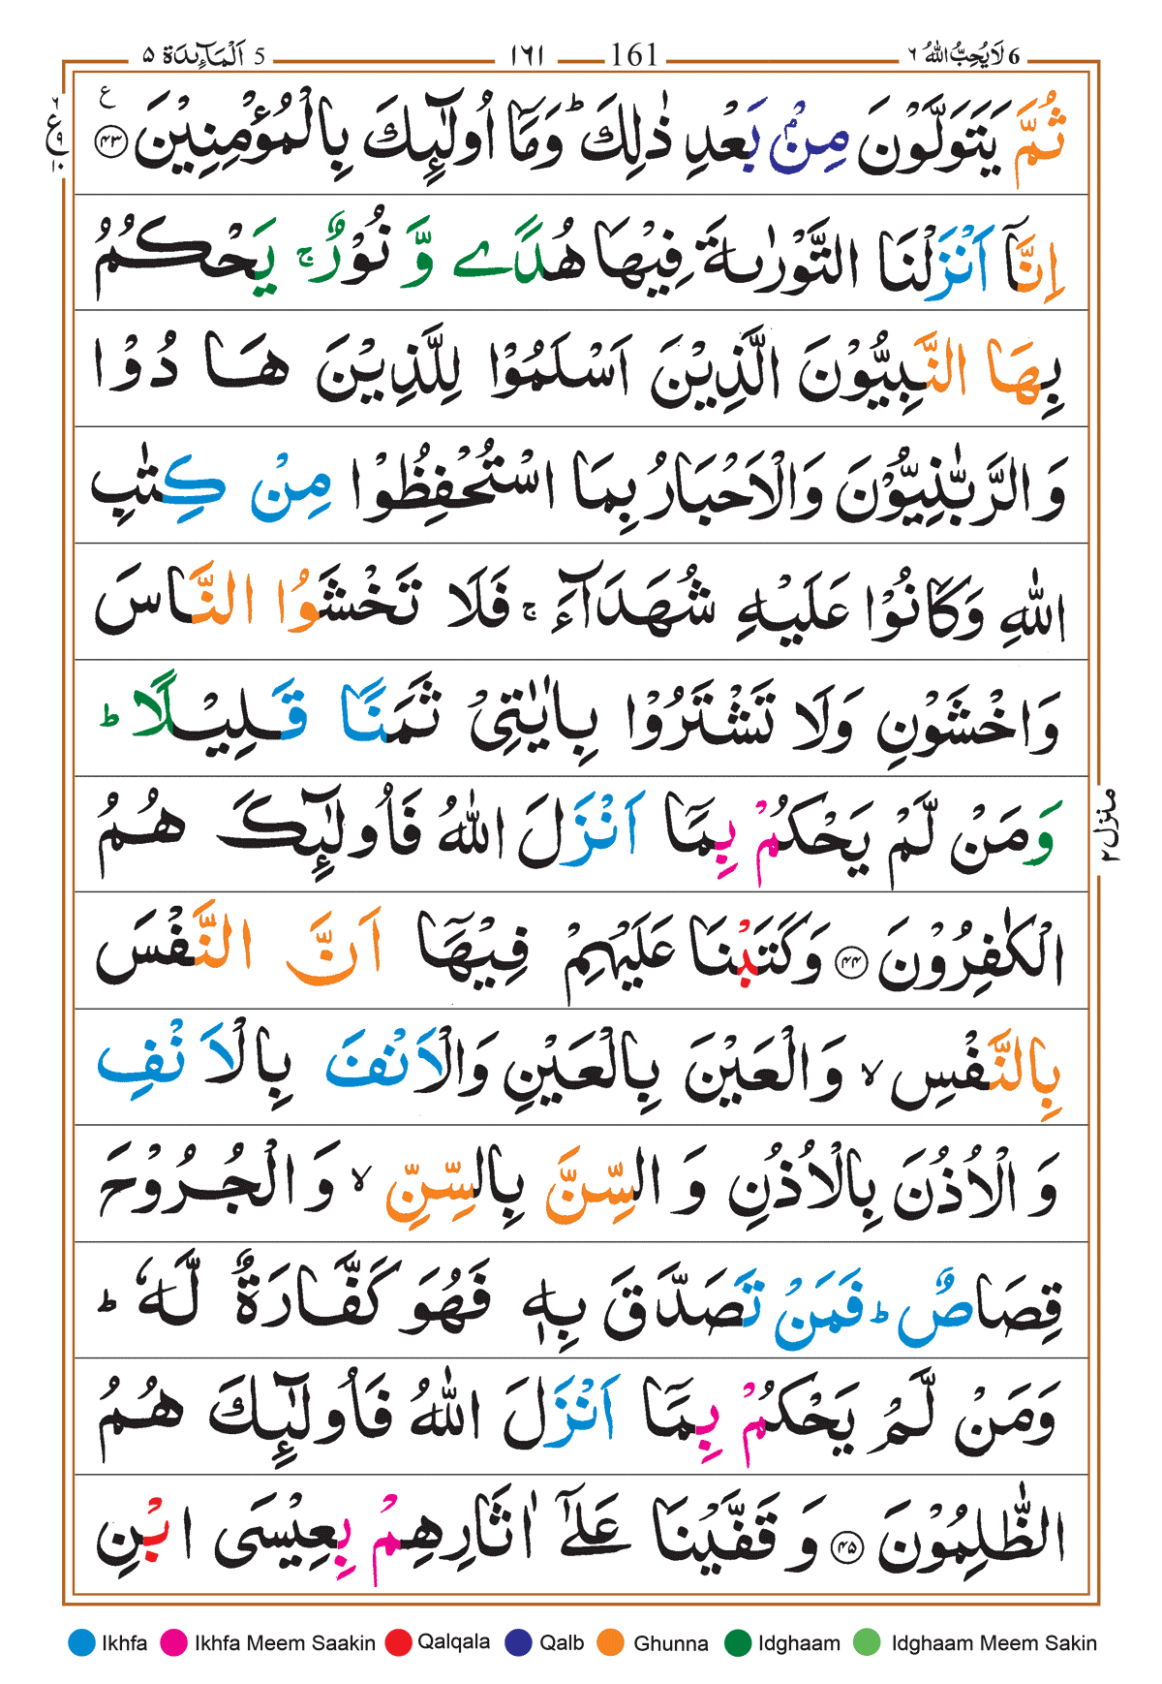 6 لَا يُحِبُّ اللّٰهُ ٦
161
١٦١
5 اَلْمَآئِدَة ٥
ثُمَّ يَتَوَلَّوْنَ مِنْۢ بَعْدِ ذٰلِكَ ؕ وَمَاۤ اُولٰٓئِكَ بِالْمُؤْمِنِيْنَ ﴿٤٣﴾ ع
٦
ع
٩
١٠
اِنَّاۤ اَنْزَلْنَا التَّوْرٰىةَ فِيْهَا هُدًے وَّ نُوْرٌ ۚ يَحْكُمُ
بِهَا النَّبِيُّوْنَ الَّذِيْنَ اَسْلَمُوْا لِلَّذِيْنَ هَا دُوْا
وَ الرَّبّٰنِيُّوْنَ وَالْاَحْبَارُ بِمَا اسْتُحْفِظُوْا مِنْ كِتٰبِ
اللّٰهِ وَكَانُوْا عَلَيْهِ شُهَدَآءَ ۚ فَلَا تَخْشَوُا النَّاسَ
وَاخْشَوْنِ وَلَا تَشْتَرُوْا بِاٰيٰتِىْ ثَمَنًا قَلِيْلًا ؕ
وَمَنْ لَّمْ يَحْكُمْ بِمَاۤ اَنْزَلَ اللّٰهُ فَاُولٰٓئِكَ هُمُ
منزل ٢
الْكٰفِرُوْنَ ﴿٤٤﴾ وَكَتَبْنَا عَلَيْهِمْ فِيْهَاۤ اَنَّ النَّفْسَ
بِالنَّفْسِ ۙ وَالْعَيْنَ بِالْعَيْنِ وَالْاَنْفَ بِالْاَنْفِ
وَ الْاُذُنَ بِالْاُذُنِ وَ السِّنَّ بِالسِّنِّ ۙ وَ الْجُرُوْحَ
قِصَاصٌ ؕ فَمَنْ تَصَدَّقَ بِهٖ فَهُوَ كَفَّارَةٌ لَّهٗ ؕ
وَمَنْ لَّمْ يَحْكُمْ بِمَاۤ اَنْزَلَ اللّٰهُ فَاُولٰٓئِكَ هُمُ
الظّٰلِمُوْنَ ﴿٤٥﴾ وَ قَفَّيْنَا عَلٰۤے اٰثَارِهِمْ بِعِيْسَى ابْنِ
Ikhfa Ikhfa Meem Saakin Qalqala Qalb Ghunna Idghaam Idghaam Meem Sakin